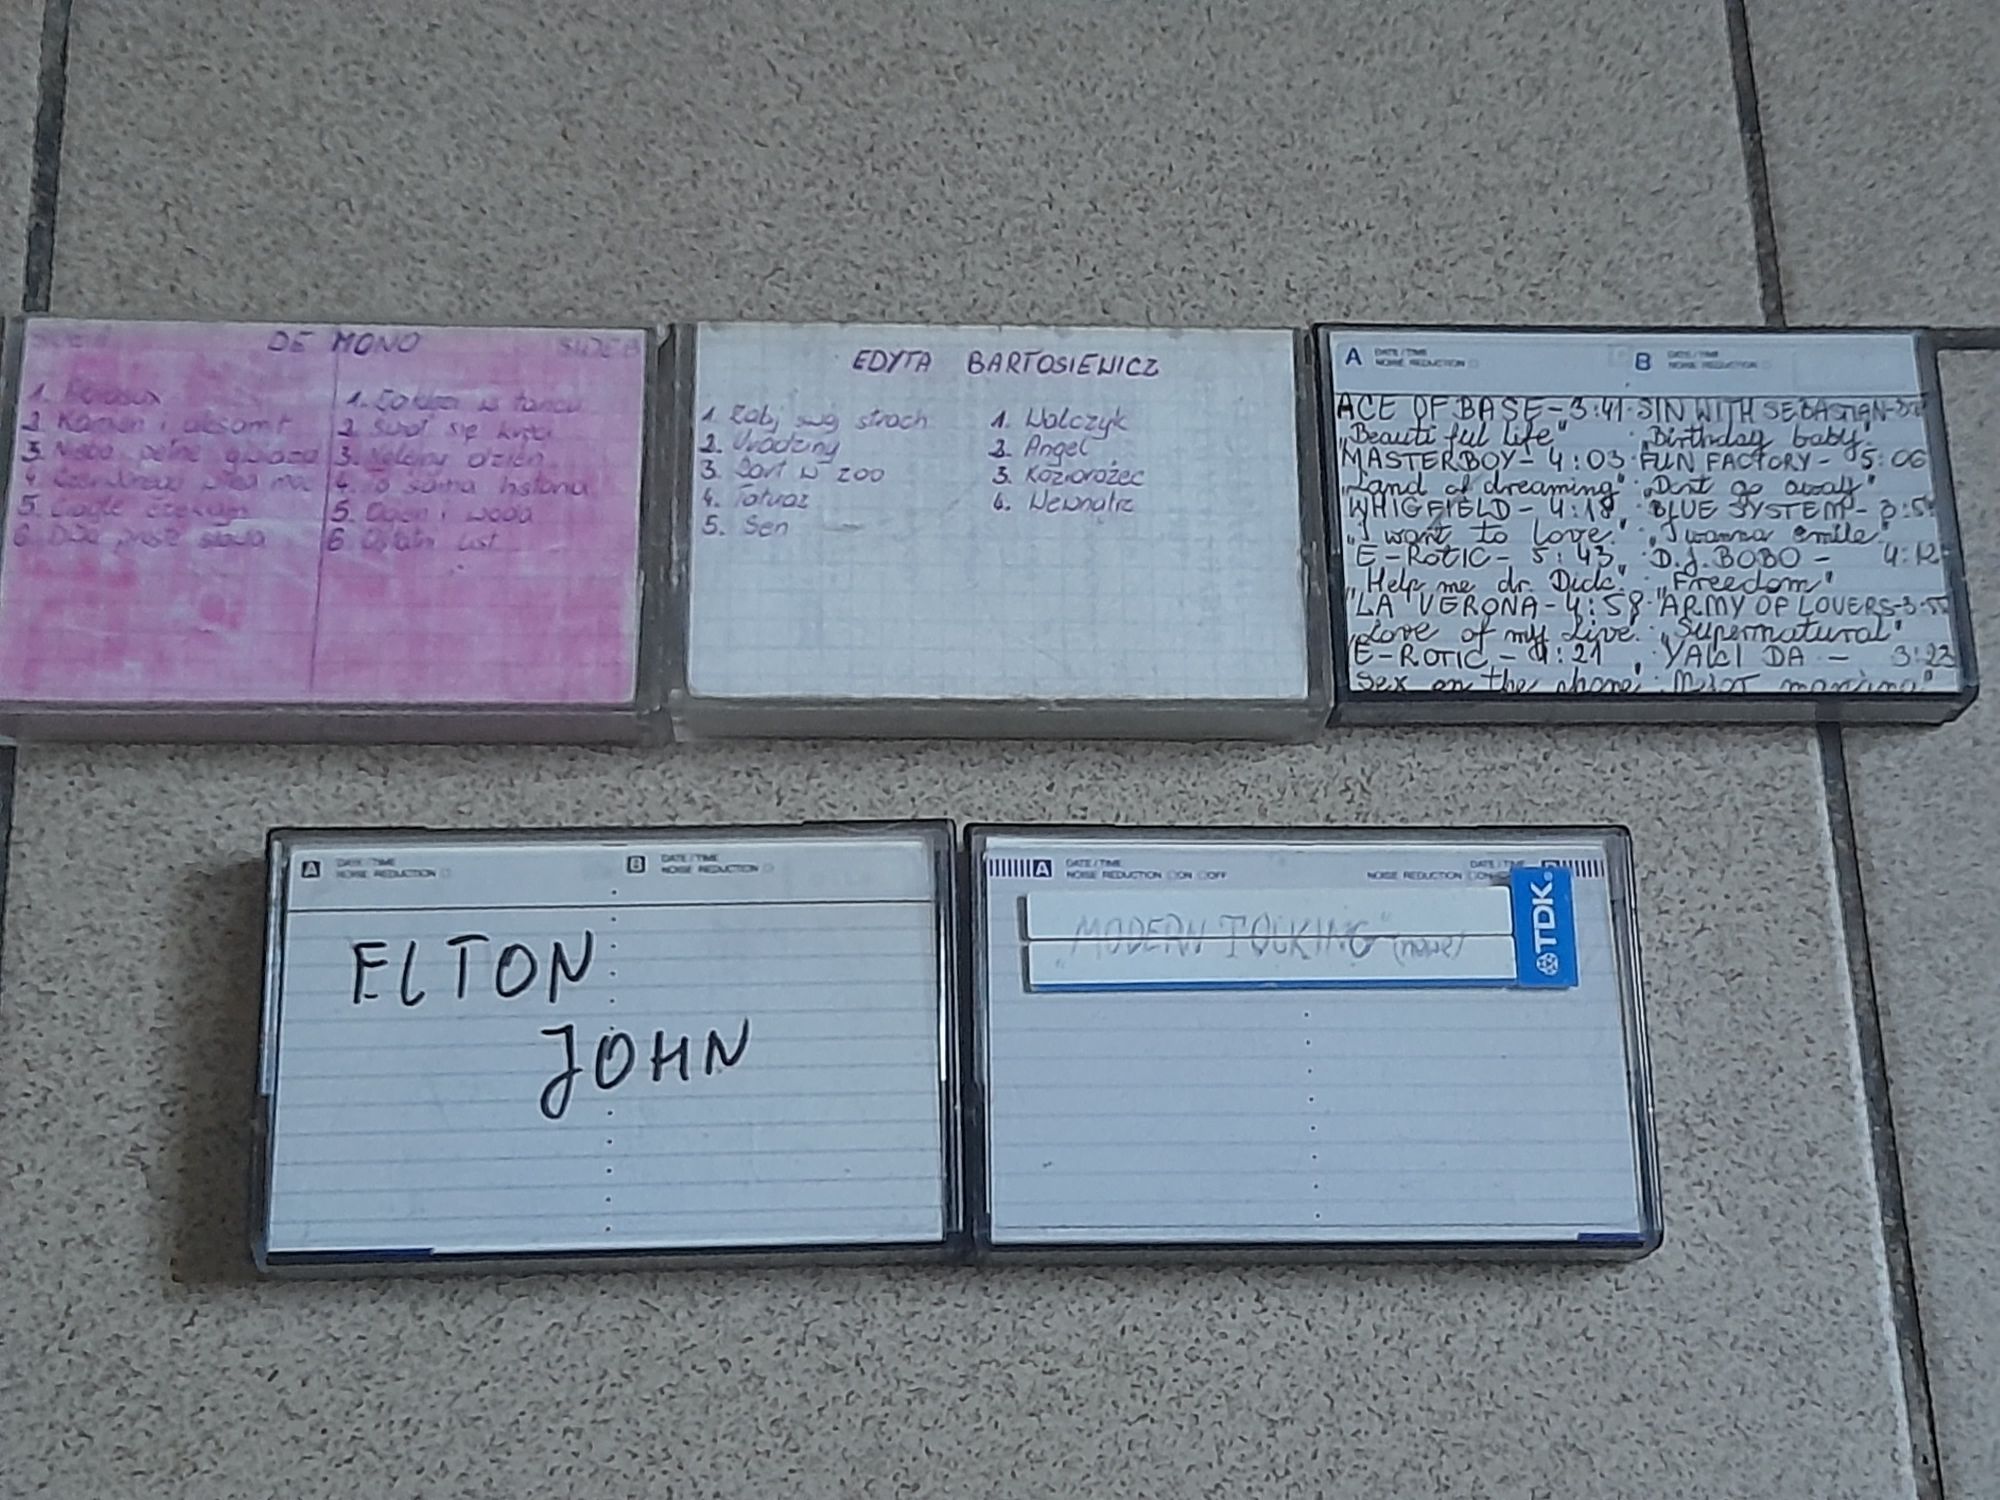 DE MONO
SIDE B
2. Kamień i aksamit
3. Niebo pełne gwiazd
5. Ciągle czekam
6. Dwa proste słowa
1. w tańcu
2. Świat się kręci
3. Kolejny dzień
4. Ta sama historia
5. Ogień i woda
6. Ostatni list
EDYTA BARTOSIEWICZ
1. Zabij swój strach
2. Urodziny
3. Żart w zoo
4. Tatuaż
5. Sen
1. Walczyk
2. Angel
3. Koziorożec
4. Wewnątrz
A DATE/TIME
NOISE REDUCTION
B DATE/TIME
NOISE REDUCTION
ACE OF BASE - 3:41 SIN WITH SEBASTIAN
"Beauti ful life" "Birthday baby"
MASTERBOY - 4:03 FUN FACTORY - 5:06
"Land of dreaming" "Dont go away"
WHIGFIELD - 4:18 BLUE SYSTEM - 3:5
"I want to love" "I wanna smile"
E-ROTIC - 5:43 D.J. BOBO - 4:12
"Help me dr. Dick" "Freedom"
LA VERONA - 4:58 ARMY OF LOVERS - 3:55
"Love of my live" "Supernatural"
E-ROTIC - 4:21 YAKI DA - 3:23
Sex on the phone
A DATE/TIME
NOISE REDUCTION
B DATE/TIME
NOISE REDUCTION
ELTON
JOHN
A DATE/TIME
NOISE REDUCTION ON OFF
DATE/TIME
NOISE REDUCTION ON
"MODERN TOLKING"
TDK